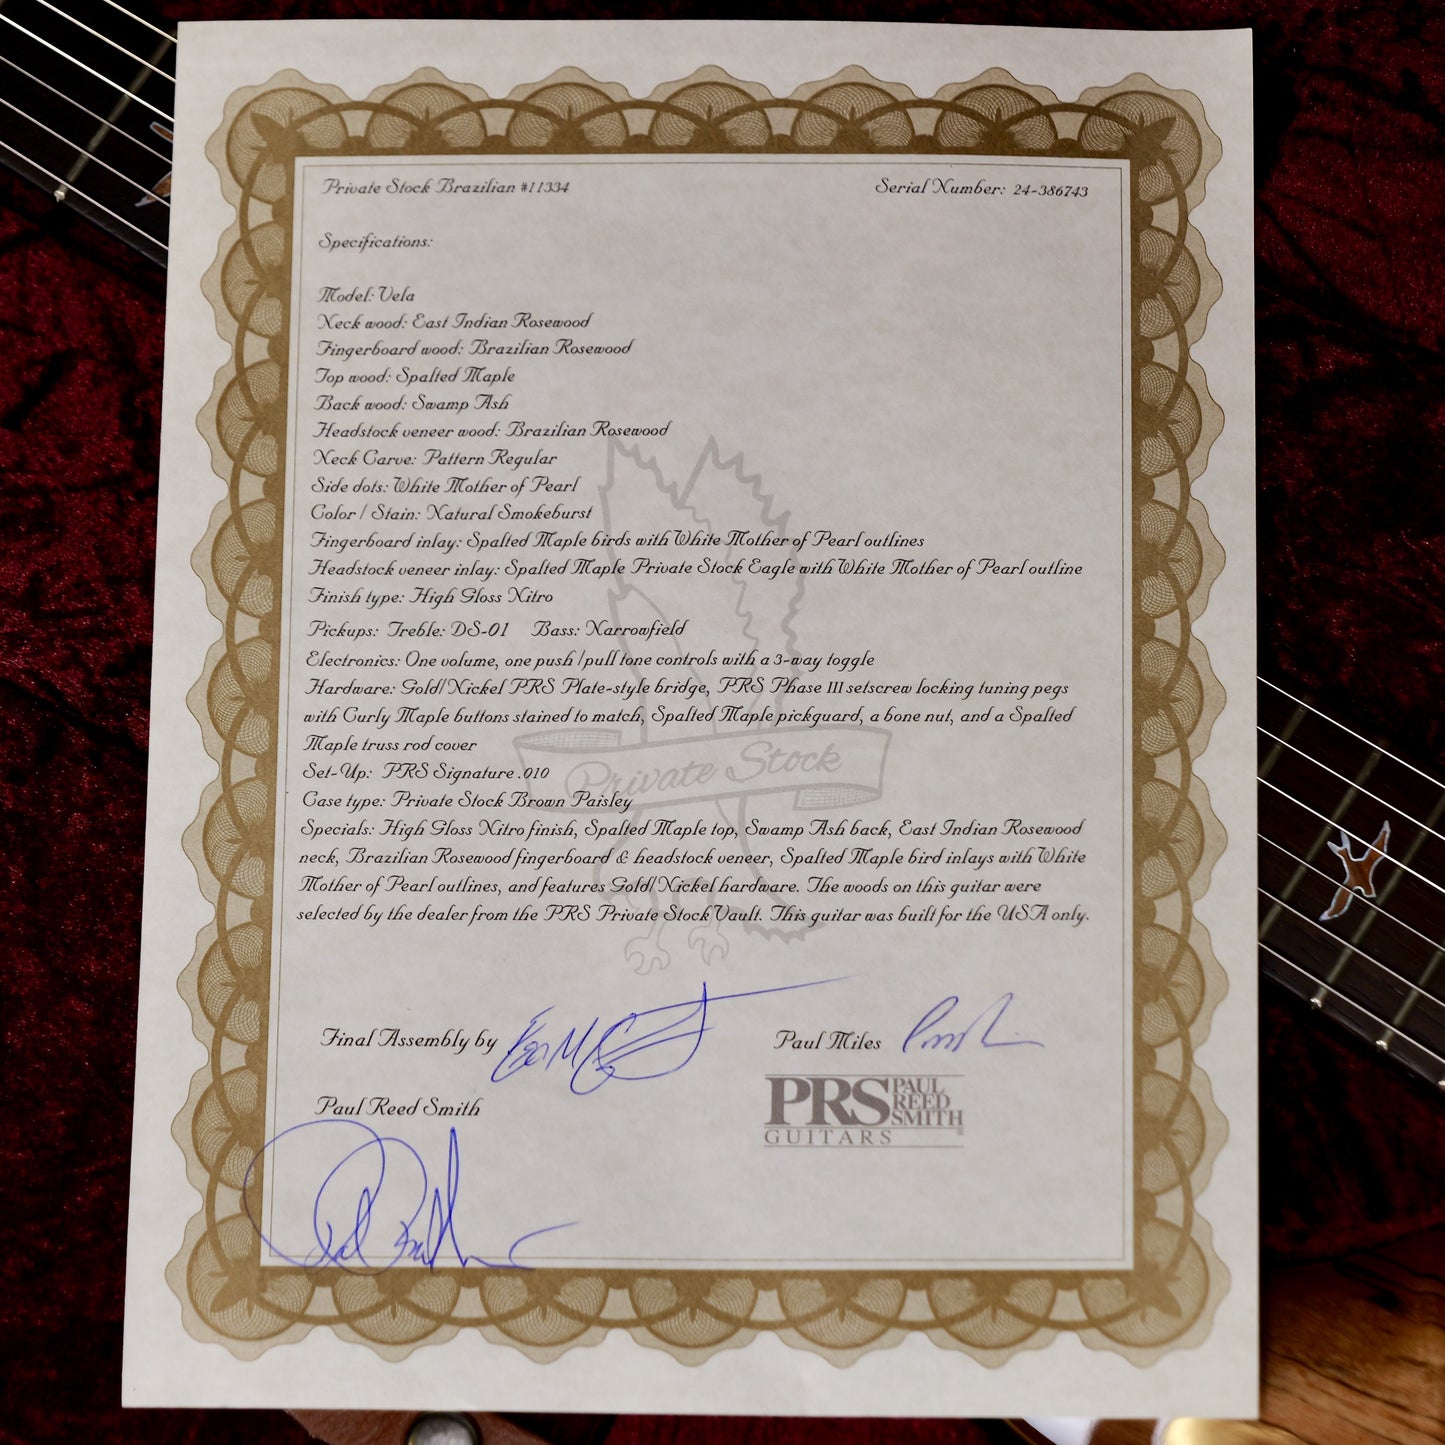 Private Stock Brazilian #11334
Serial Number: 24-386743
Specifications:
Model: Vela
Neck wood: East Indian Rosewood
Fingerboard wood: Brazilian Rosewood
Top wood: Spalted Maple
Back wood: Swamp Ash
Headstock veneer wood: Brazilian Rosewood
Neck Carve: Pattern Regular
Side dots: White Mother of Pearl
Color / Stain: Natural Smokeburst
Fingerboard inlay: Spalted Maple birds with White Mother of Pearl outlines
Headstock veneer inlay: Spalted Maple Private Stock Eagle with White Mother of Pearl outline
Finish type: High Gloss Nitro
Pickups: Treble: DS-01 Bass: Narrowfield
Electronics: One volume, one push /pull tone controls with a 3-way toggle
Hardware: Gold/Nickel PRS Plate-style bridge, PRS Phase III setscrew locking tuning pegs
with Curly Maple buttons stained to match, Spalted Maple pickguard, a bone nut, and a Spalted
Maple truss rod cover
Private Stock
Set-Up: PRS Signature .010
Case type: Private Stock Brown Paisley
Specials: High Gloss Nitro finish, Spalted Maple top, Swamp Ash back, East Indian Rosewood
neck, Brazilian Rosewood fingerboard & headstock veneer, Spalted Maple bird inlays with White
Mother of Pearl outlines, and features Gold/Nickel hardware. The woods on this guitar were
selected by the dealer from the PRS Private Stock Vault. This guitar was built for the USA only.
Final Assembly by
Paul Miles
Paul Reed Smith
PRS PAUL REED SMITH
GUITARS